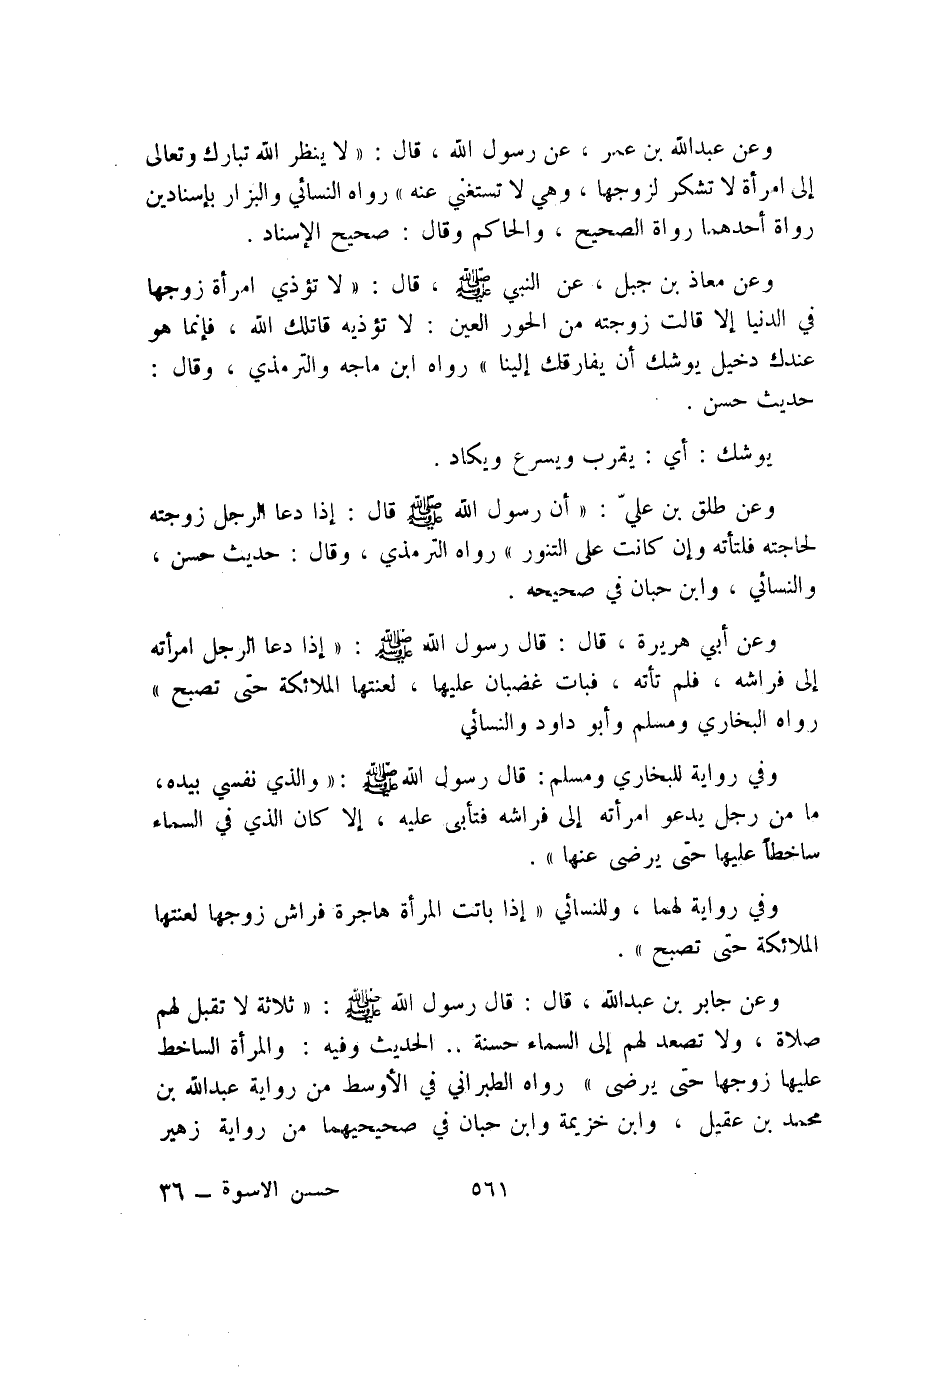 وعن عبدالله بن عمر ، عن رسول الله ، قال : « لا ينظر الله تبارك وتعالى
إلى امرأة لا تشكر لزوجها ، وهي لا تستغني عنه » رواه النسائي والبزار بإسنادين
رواة أحدهما رواة الصحيح ، والحاكم وقال : صحيح الإسناد .
وعن معاذ بن جبل ، عن النبي ﷺ ، قال : « لا تؤذي امرأة زوجها
في الدنيا إلا قالت زوجته من الحور العين : لا تؤذيه قاتلك الله ، فإنما هو
عندك دخيل يوشك أن يفارقك إلينا » رواه ابن ماجه والترمذي ، وقال :
حديث حسن .
يوشك : أي : يقرب ويسرع ويكاد .
وعن طلق بن عليّ : « أن رسول الله ﷺ قال : إذا دعا الرجل زوجته
لحاجته فلتأته وإن كانت على التنور » رواه الترمذي ، وقال : حديث حسن ،
والنسائي ، وابن حبان في صحيحه .
وعن أبي هريرة ، قال : قال رسول الله ﷺ : « إذا دعا الرجل امرأته
إلى فراشه ، فلم تأته ، فبات غضبان عليها ، لعنتها الملائكة حتى تصبح »
رواه البخاري ومسلم وأبو داود والنسائي
وفي رواية للبخاري ومسلم : قال رسول الله ﷺ : « والذي نفسي بيده،
ما من رجل يدعو امرأته إلى فراشه فتأبى عليه ، إلا كان الذي في السماء
ساخطاً عليها حتى يرضى عنها » .
وفي رواية لهما ، وللنسائي « إذا باتت المرأة هاجرة فراش زوجها لعنتها
الملائكة حتى تصبح » .
وعن جابر بن عبدالله ، قال : قال رسول الله ﷺ : « ثلاثة لا تقبل لهم
صلاة ، ولا تصعد لهم إلى السماء حسنة .. الحديث وفيه : والمرأة الساخط
عليها زوجها حتى يرضى » رواه الطبراني في الأوسط من رواية عبدالله بن
محمد بن عقيل ، وابن خزيمة وابن حبان في صحيحيهما من رواية زهير
٥٦١
حسن الاسوة – ٣٦